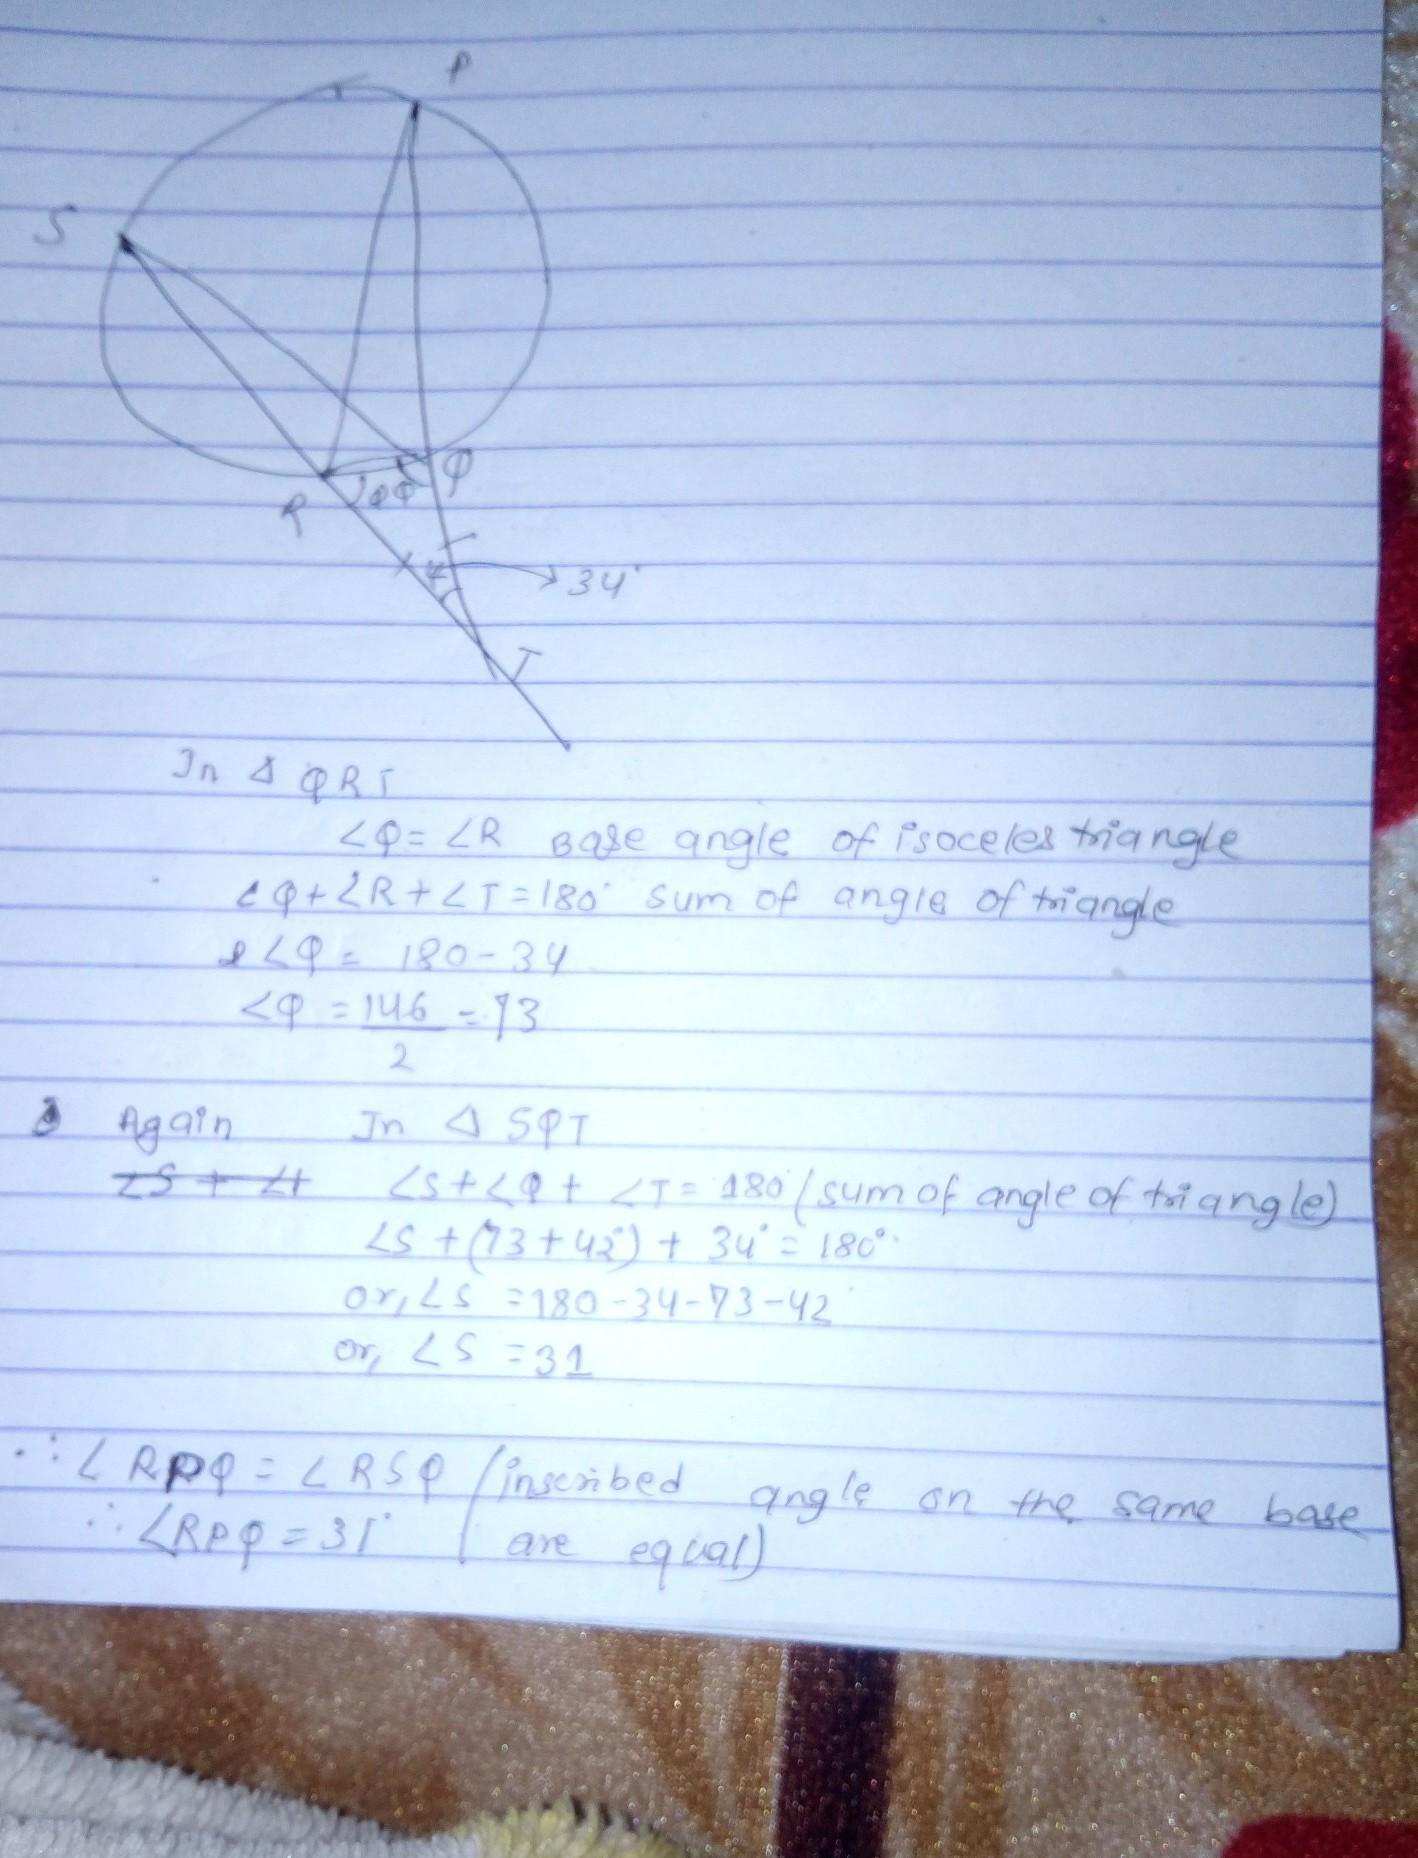 P
S
Q
R
34°
T
In Δ QRT
∠Q = ∠R Base angle of isoceles triangle
∠Q + ∠R + ∠T = 180° sum of angle of triangle
2∠Q = 180 - 34
∠Q = 146/2 = 73
Again In Δ SQT
∠S + ∠Q + ∠T = 180° (sum of angle of triangle)
∠S + (73 + 42°) + 34° = 180°
or, ∠S = 180 - 34 - 73 - 42
or, ∠S = 31
∴ ∠RPQ = ∠RSQ (inscribed angle on the same base
∴ ∠RPQ = 31° are equal)